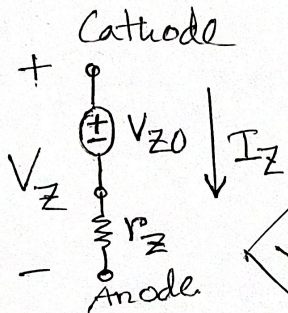 Cathode
+
+
-
V_Z0
I_Z
V_Z
r_z
-
Anode